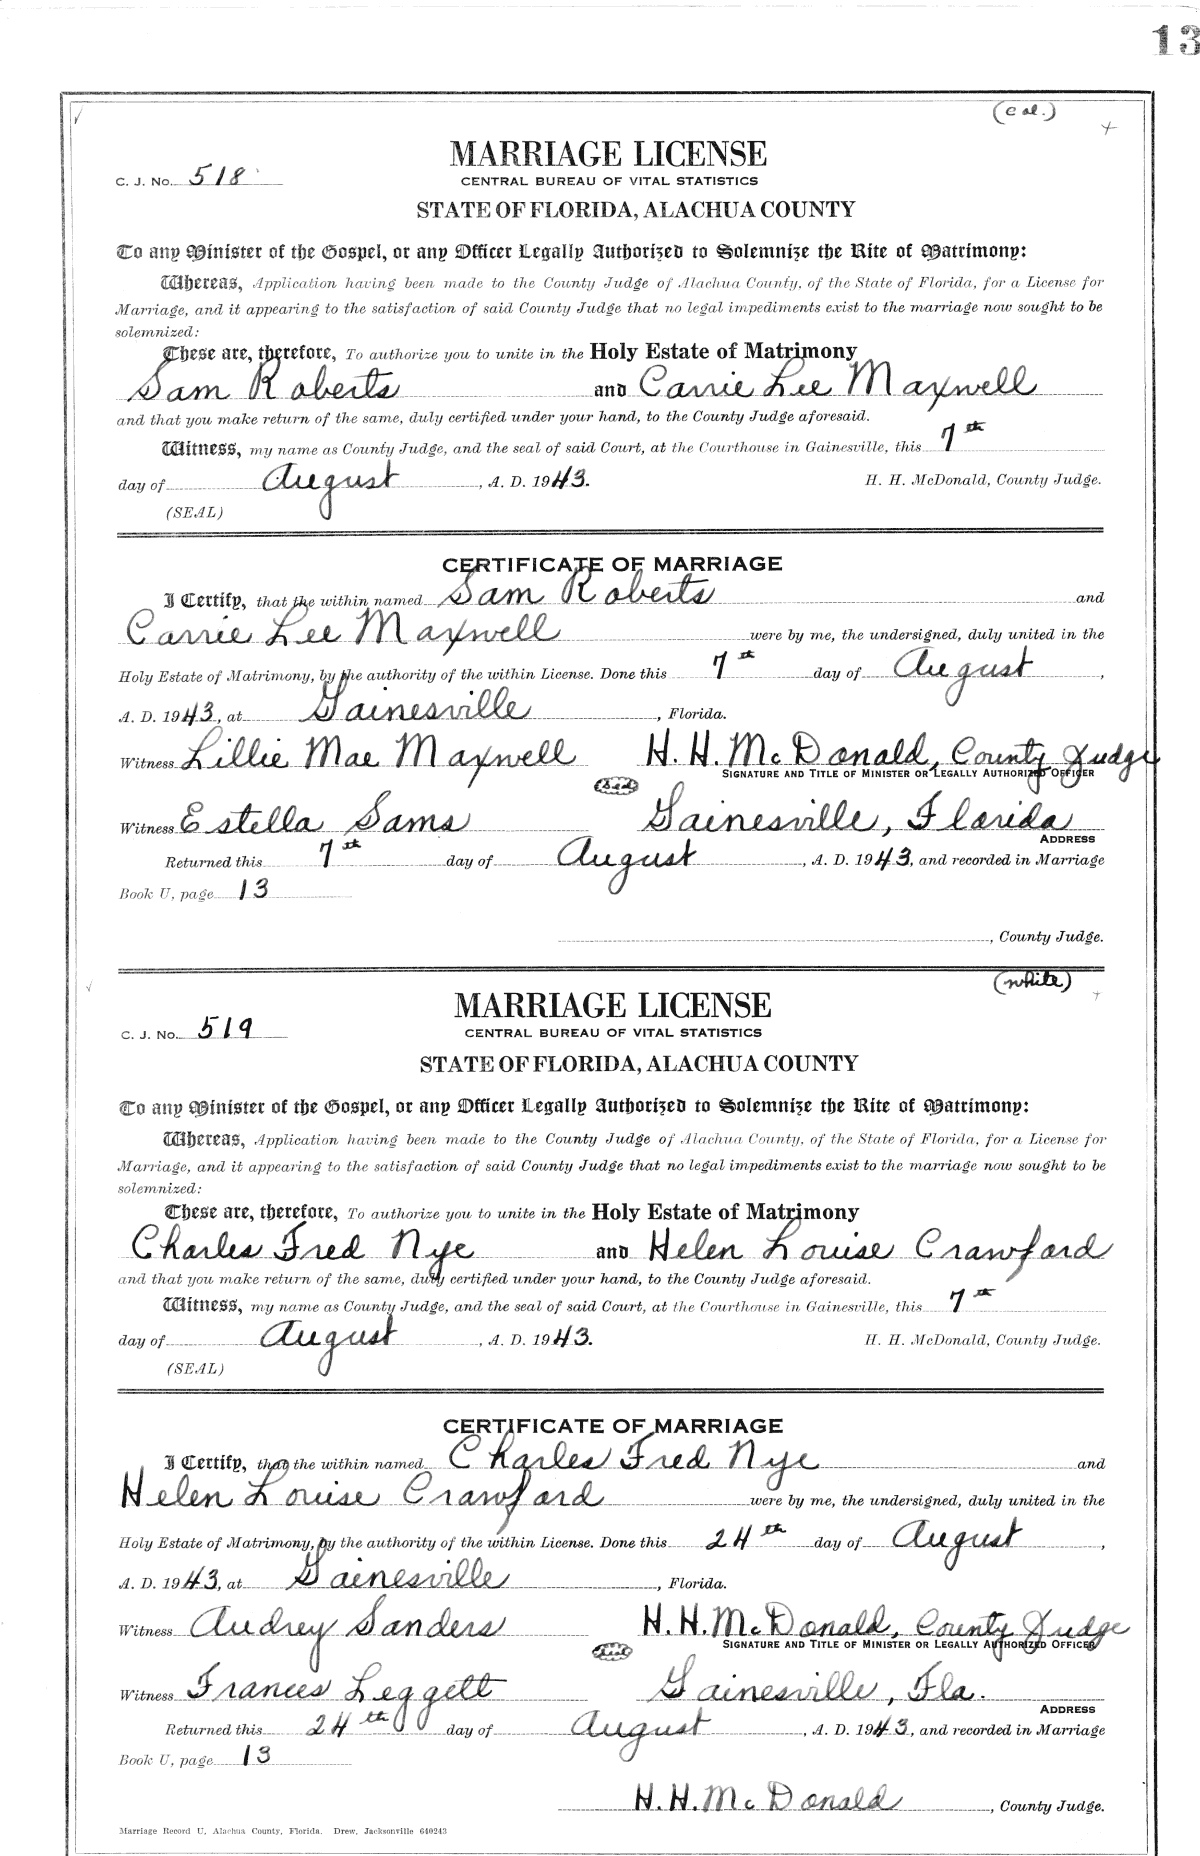 13
(col.)
MARRIAGE LICENSE
C. J. No. 518
CENTRAL BUREAU OF VITAL STATISTICS
STATE OF FLORIDA, ALACHUA COUNTY
To any Minister of the Gospel, or any Officer Legally Authorized to Solemnize the Rite of Matrimony:
Whereas, Application having been made to the County Judge of Alachua County, of the State of Florida, for a License for
Marriage, and it appearing to the satisfaction of said County Judge that no legal impediments exist to the marriage now sought to be
solemnized:
These are, therefore, To authorize you to unite in the Holy Estate of Matrimony
Sam Roberts and Carrie Lee Maxwell
and that you make return of the same, duly certified under your hand, to the County Judge aforesaid.
Witness, my name as County Judge, and the seal of said Court, at the Courthouse in Gainesville, this 7th
day of August, A. D. 1943. H. H. McDonald, County Judge.
(SEAL)
CERTIFICATE OF MARRIAGE
I Certify, that the within named Sam Roberts and
Carrie Lee Maxwell were by me, the undersigned, duly united in the
Holy Estate of Matrimony, by the authority of the within License. Done this 7th day of August,
A. D. 1943, at Gainesville, Florida.
Witness Lillie Mae Maxwell H. H. McDonald, County Judge
SIGNATURE AND TITLE OF MINISTER OR LEGALLY AUTHORIZED OFFICER
(Seal)
Witness Estella Sams Gainesville, Florida
ADDRESS
Returned this 7th day of August, A. D. 1943, and recorded in Marriage
Book U, page 13
, County Judge.
(white)
MARRIAGE LICENSE
C. J. No. 519
CENTRAL BUREAU OF VITAL STATISTICS
STATE OF FLORIDA, ALACHUA COUNTY
To any Minister of the Gospel, or any Officer Legally Authorized to Solemnize the Rite of Matrimony:
Whereas, Application having been made to the County Judge of Alachua County, of the State of Florida, for a License for
Marriage, and it appearing to the satisfaction of said County Judge that no legal impediments exist to the marriage now sought to be
solemnized:
These are, therefore, To authorize you to unite in the Holy Estate of Matrimony
Charles Fred Nye and Helen Louise Crawford
and that you make return of the same, duly certified under your hand, to the County Judge aforesaid.
Witness, my name as County Judge, and the seal of said Court, at the Courthouse in Gainesville, this 7th
day of August, A. D. 1943. H. H. McDonald, County Judge.
(SEAL)
CERTIFICATE OF MARRIAGE
I Certify, that the within named Charles Fred Nye and
Helen Louise Crawford were by me, the undersigned, duly united in the
Holy Estate of Matrimony, by the authority of the within License. Done this 24th day of August,
A. D. 1943, at Gainesville, Florida.
Witness Audrey Sanders H. H. McDonald, County Judge
SIGNATURE AND TITLE OF MINISTER OR LEGALLY AUTHORIZED OFFICER
(Seal)
Witness Frances Leggett Gainesville, Fla.
ADDRESS
Returned this 24th day of August, A. D. 1943, and recorded in Marriage
Book U, page 13
H. H. McDonald, County Judge.
Marriage Record U, Alachua County, Florida. Drew, Jacksonville 640243